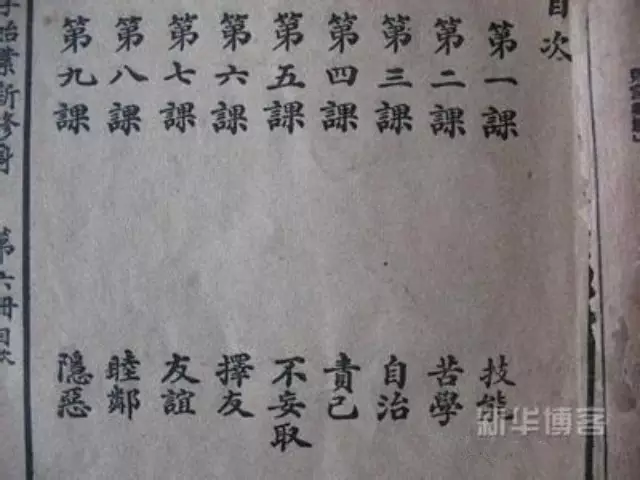 目次
第一課 技能
第二課 苦學
第三課 自治
第四課 責己
第五課 不妄取
第六課 擇友
第七課 友誼
第八課 睦鄰
第九課 隱惡
子始業新修身 第六冊目次
新华博客